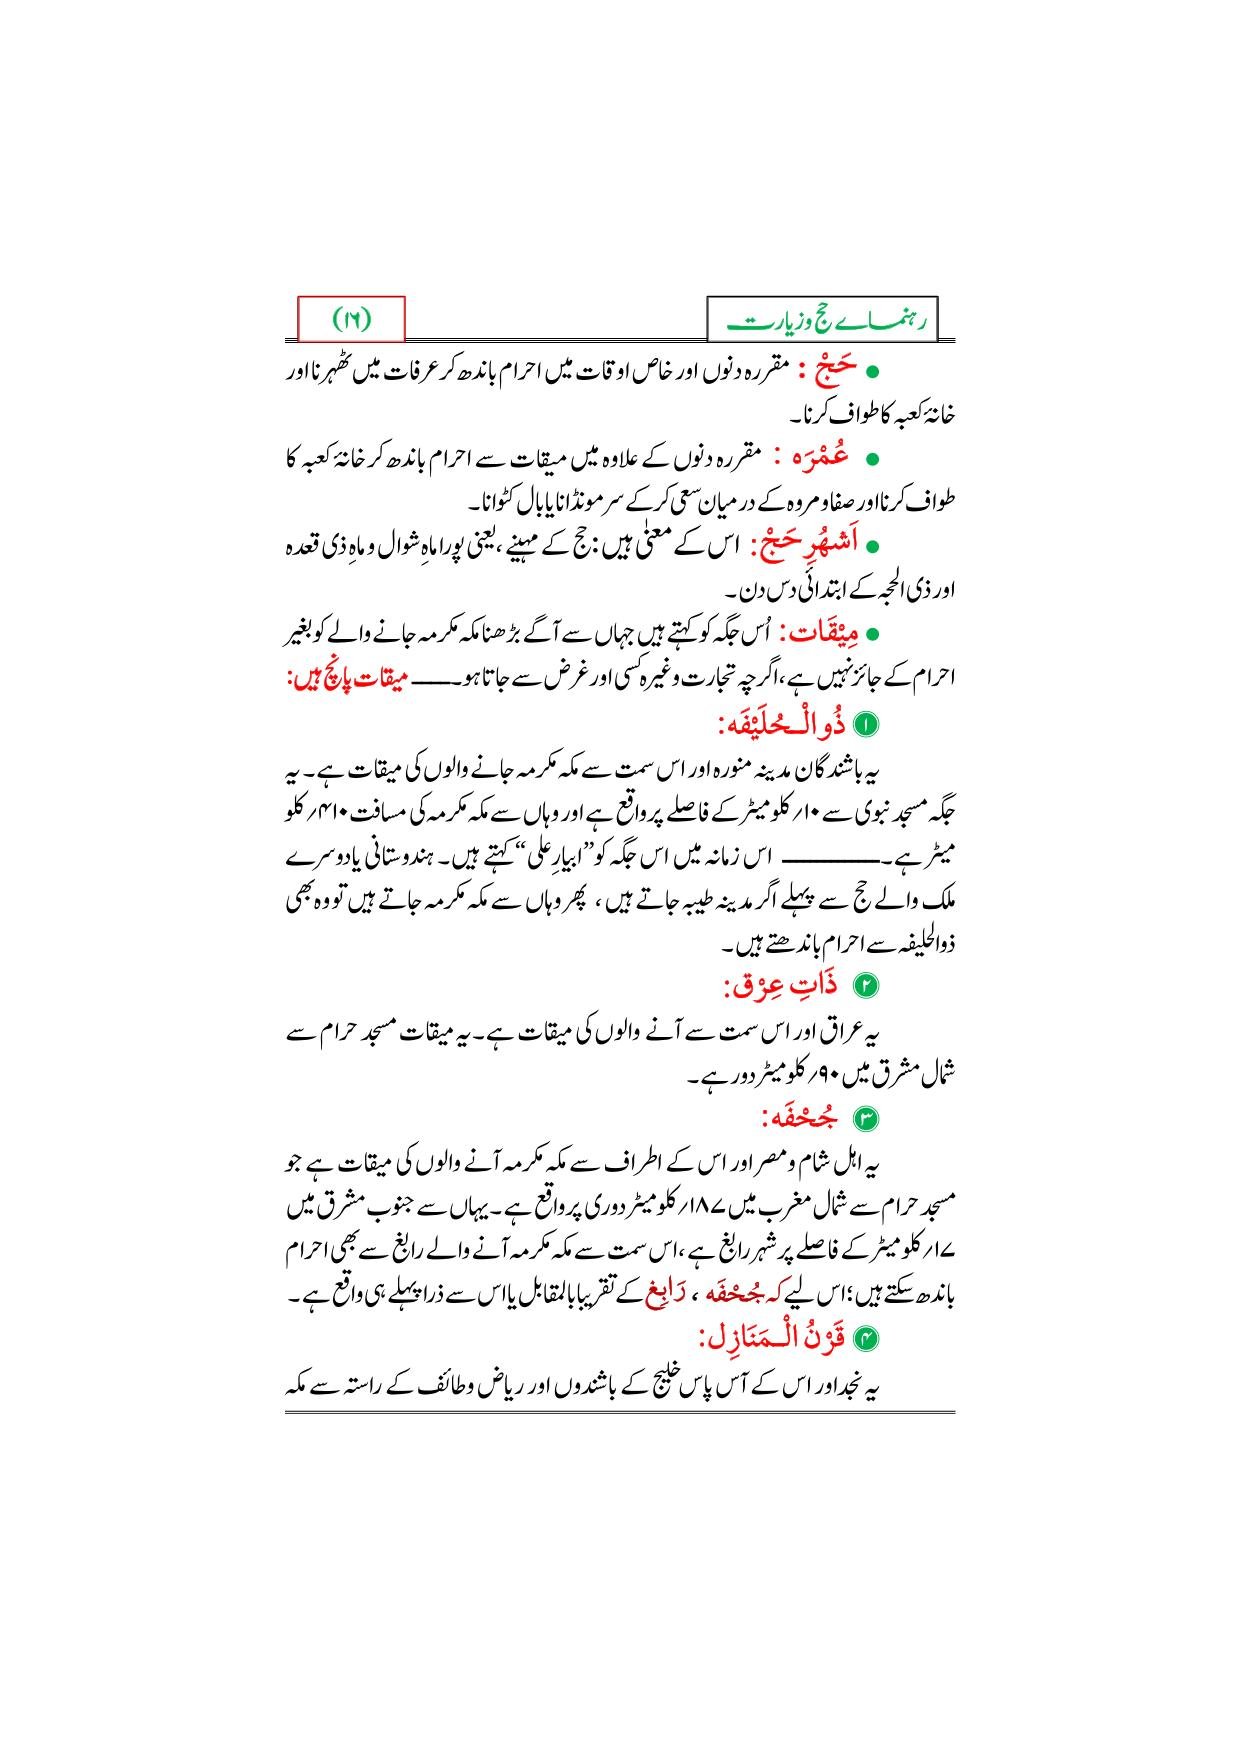 رہنماے حج وزیارت
(۱۶)
● حَجْ : مقررہ دنوں اور خاص اوقات میں احرام باندھ کر عرفات میں ٹھہرنا اور
خانۂ کعبہ کا طواف کرنا۔
● عُمْرَہ : مقررہ دنوں کے علاوہ میں میقات سے احرام باندھ کر خانۂ کعبہ کا
طواف کرنا اور صفا و مروہ کے درمیان سعی کرکے سر مونڈانا یا بال کٹوانا۔
● اَشْهُرِ حَجْ: اس کے معنٰی ہیں: حج کے مہینے، یعنی پورا ماہِ شوال و ماہِ ذی قعدہ
اور ذی الحجہ کے ابتدائی دس دن۔
● مِیْقَات: اُس جگہ کو کہتے ہیں جہاں سے آگے بڑھنا مکہ مکرمہ جانے والے کو بغیر
احرام کے جائز نہیں ہے، اگرچہ تجارت وغیرہ کسی اور غرض سے جاتا ہو۔ــــــ میقات پانچ ہیں:
۱ ذُو الْـحُلَیْفَہ:
یہ باشندگان مدینہ منورہ اور اس سمت سے مکہ مکرمہ جانے والوں کی میقات ہے۔ یہ
جگہ مسجد نبوی سے ۱۰؍ کلو میٹر کے فاصلے پر واقع ہے اور وہاں سے مکہ مکرمہ کی مسافت ۴۱۰؍ کلو
میٹر ہے۔ــــــــــــــ اس زمانہ میں اس جگہ کو ”ابیارِ علی“ کہتے ہیں۔ ہندوستانی یا دوسرے
ملک والے حج سے پہلے اگر مدینہ طیبہ جاتے ہیں، پھر وہاں سے مکہ مکرمہ جاتے ہیں تو وہ بھی
ذوالحلیفہ سے احرام باندھتے ہیں۔
۲ ذَاتِ عِرْق:
یہ عراق اور اس سمت سے آنے والوں کی میقات ہے۔ یہ میقات مسجد حرام سے
شمال مشرق میں ۹۰؍ کلو میٹر دور ہے۔
۳ جُحْفَہ:
یہ اہل شام و مصر اور اس کے اطراف سے مکہ مکرمہ آنے والوں کی میقات ہے جو
مسجد حرام سے شمال مغرب میں ۱۸۷؍ کلو میٹر دوری پر واقع ہے۔ یہاں سے جنوب مشرق میں
۱۷؍ کلو میٹر کے فاصلے پر شہر رابغ ہے، اس سمت سے مکہ مکرمہ آنے والے رابغ سے بھی احرام
باندھ سکتے ہیں؛ اس لیے کہ جُحْفَہ ، رَابِغ کے تقریبا بالمقابل یا اس سے ذرا پہلے ہی واقع ہے۔
۴ قَرْنُ الْـمَنَازِل:
یہ نجد اور اس کے آس پاس خلیج کے باشندوں اور ریاض و طائف کے راستہ سے مکہ